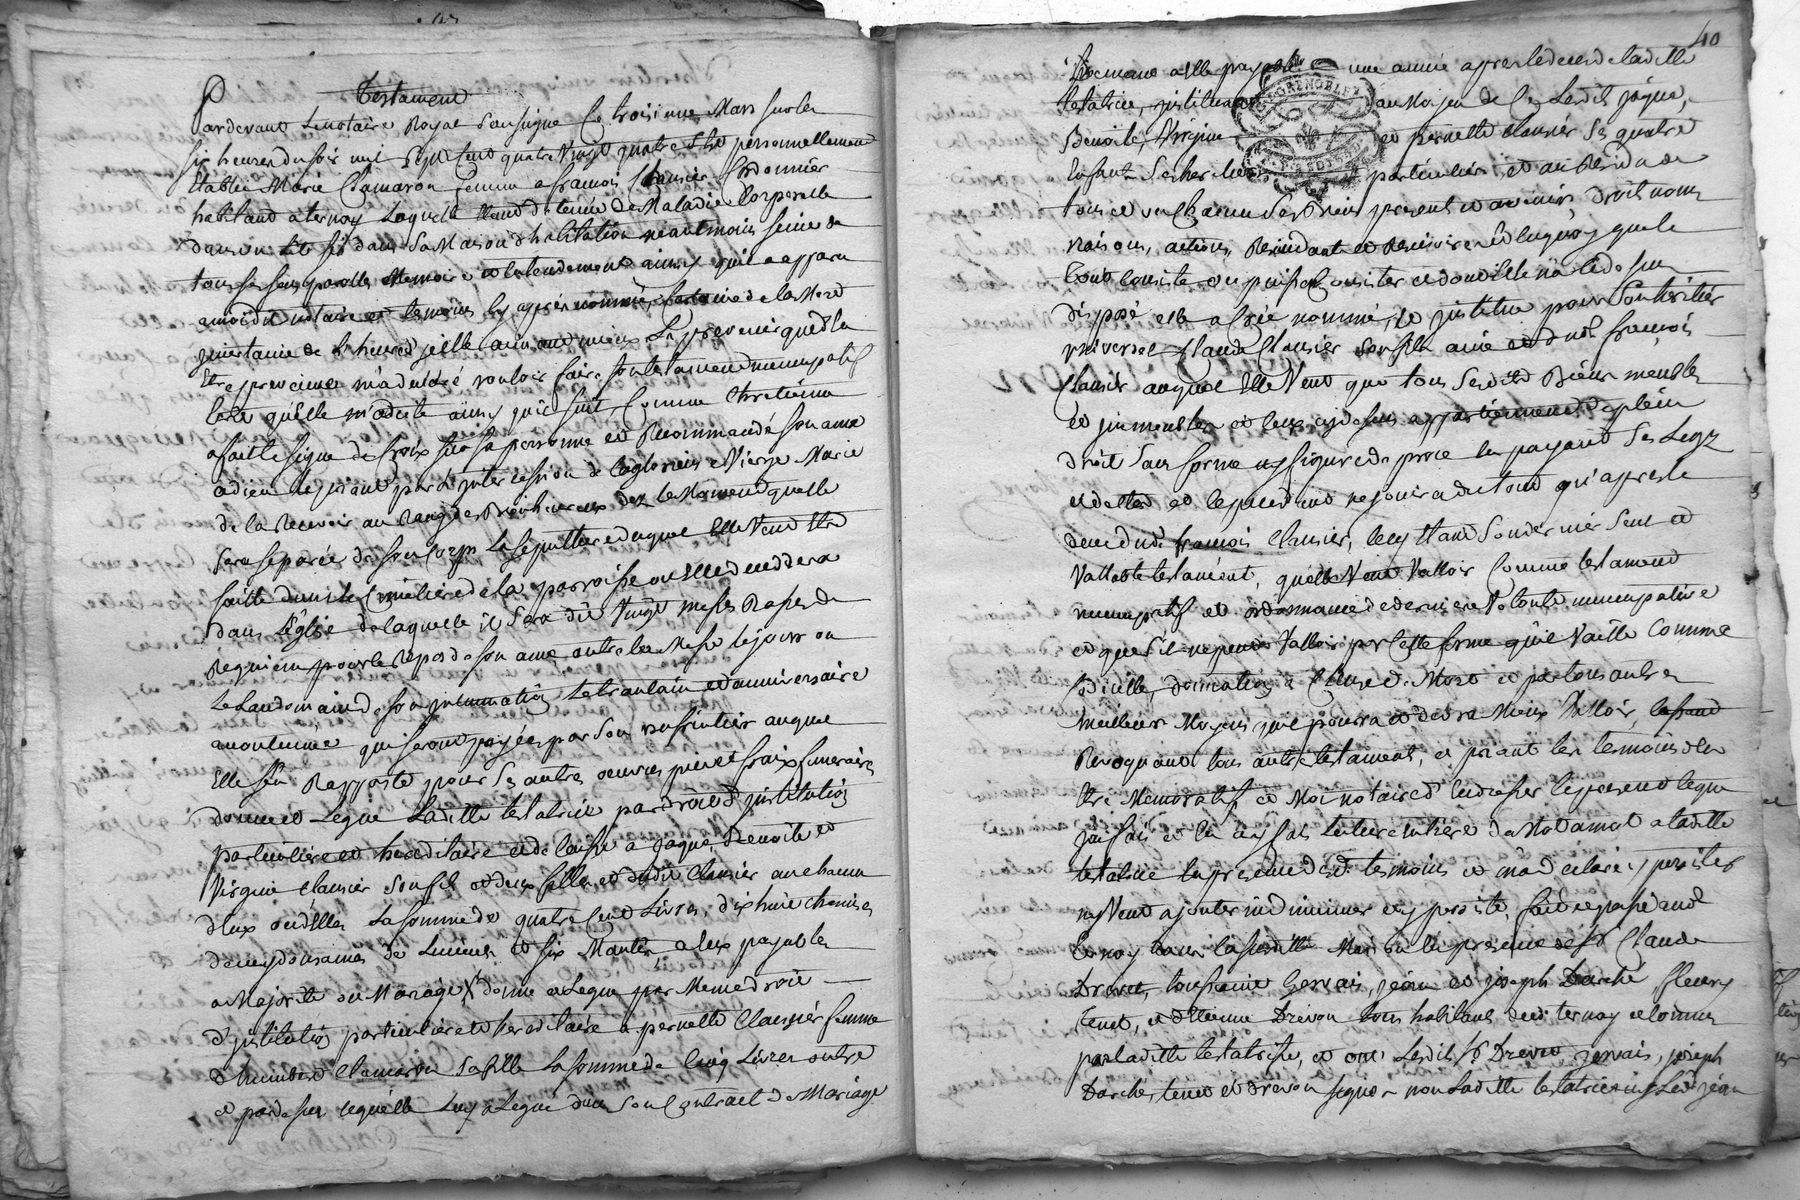 Testament
Pardevant Le notaire Royal Soussigné Ce troisieme Mars sur les
six heures du soir mil Sept Cent quatre Vingt quatre personnellement
Etablie Marie Clamaron femme a francois Clausier Cordonnier
habitant a ternay Laquelle Etant detenüe de Maladie Corporelle
dans un Lit dans Sa Maison d'habitation neantmoins Seine de
tous ses Sens parolle Memoire et Entendement ainsy qu'il a apparu
a moi dit notaire et temoins cy après nommés, Certaine de la Mort
jncertaine de L'heure d'jcelle aimant mieux La prevenir que d'En
Etre prevenüe m'a declaré vouloir faire son testament nuncupatif
Ecrit qu'elle m'a dicté ainsy qu'il suit, Comme Chretienne
a fait le signe de Croix sur sa personne et Recommandé son ame
a dieu Le priant par L'jntercession de la glorieuse Vierge Marie
de la Recevoir au Rang des Bienheureux dez le Moment quelle
Sera separée de son Corps La sepulture duquel Elle Veut Etre
faitte dans le Cimetiere de la parroisse ou Elle deceddera
dans L'Eglise de laquelle il Sera dit Vingt messes Basses de
Requiem pour le Repos de son ame outre la Messe le jour ou
Le Landemain de son jnhumation Le trantain et anniversaire
accoutumée qui seront payées par son susheritier auquel
Elle s'En Rapporte pour Ses autres oeuvres pies et fraix funeraires
donne et Legue Laditte testatrice par droit d'jnstitution
particuliere et hereditaire et de laisse a Jaque, Benoite et
Virginie Clausier son fils et deux filles et dudit Clausier a un chacun
d'Eux ou d'Elles La somme de quatre Cent Livres, dix huit Chemises
deux douzaines de Linceuls et six Mantes a Eux payables
a Majorité ou Mariage, donne et Legue par Meme droit
d'jnstitution particuliere et hereditaire a pernette Clausier femme
d'humbert Clamaron Sa fille La somme de Cinq Livres outre
et pardessus ce qu'elle Luy a Legué dans son Contract de Mariage
40
Romane a Elle payable une année apres le deces de laditte
testatrice, jnstituant au Moyen de Ce Lesdits Jaque,
Benoite, Virginie et pernette Clausier Ses quatre
Enfants Ses heritiers particuliers, et au Residu de
tous et un Chacun Ses Biens present et avenir, droits noms
raisons, actions, Rescindant et Rescisoire En Lequoy que le
tout Consiste ou puisse Consister et dont Elle n'a Cy dessus
disposé elle a Créé nommé, et jnstitue pour son heritier
Universel Claude Clausier son fils ainé et dudit francois
Clausier auquel Elle Veut que tous Sesdits Biens meubles
et jmmeubles et Ceux cy dessus appartiennent de plein
droit Sans forme ny figure de proce En payant Ses Legz
et dettes et Cependant ne jouira du tout qu'apres le
deces dudit francois Clausier, Cecy Etant Son dernier Seul et
Vallable testament, quelle Veut Valloir Comme testament
nuncupatif et ordonnance de derniere Volonté nuncupative
et que S'il ne peut Valloir par Cette forme qu'il Vaille Comme
Codicille, donation a Cause de Mort et par tous autres
meilleurs Moyens qu'il pourra et devra Mieux Valloir,
Revoquant tous autre testament, et priant les temoins d'En
Etre Memoratifs et Moi notaire d'En dresser le present ce que
j'ai fait et En ay fait Lecture Entiere de Mot a mot a laditte
testatrice En presence desdits temoins et m'a declaré y persister
ny Veut ajouter ni diminuer et y persiste, fait et passé audit
ternay dans la susditte Maison En presence de Sr Claude
Drevet, toussaint Gervais, jean et joseph Darche fleury
tenet, et Etienne Drevon tous habitant dudit ternay et Connus
par laditte testatrice, et ont Lesdits Sr Drevet, gervais, joseph
Darche, tenet et drevon signé non Laditte testatrice ni Ledit jean